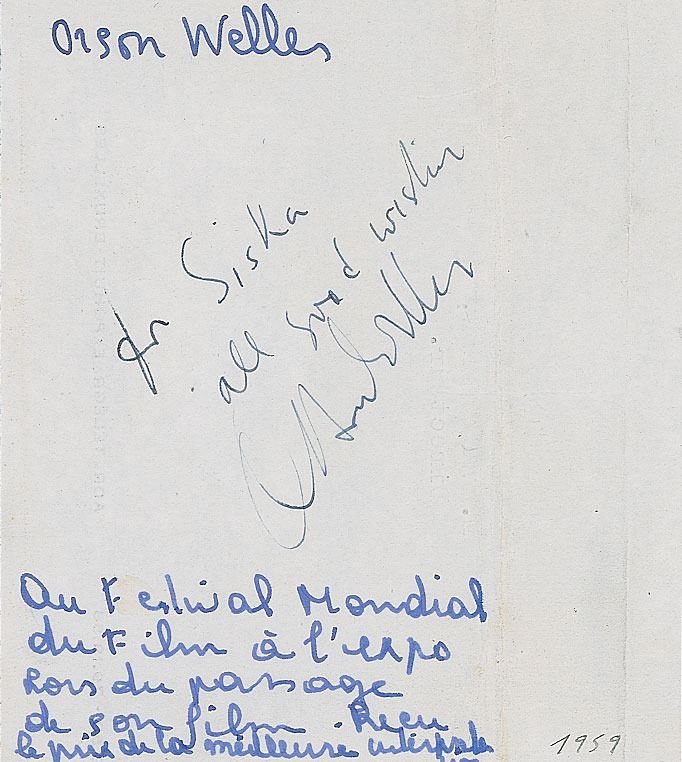 Orson Welles
for Siska
all good wishes
Orson Welles
Au Festival Mondial
du Film à l'expo
Lors du passage
de son film. Recu
le prix de la meilleure interprète
1959